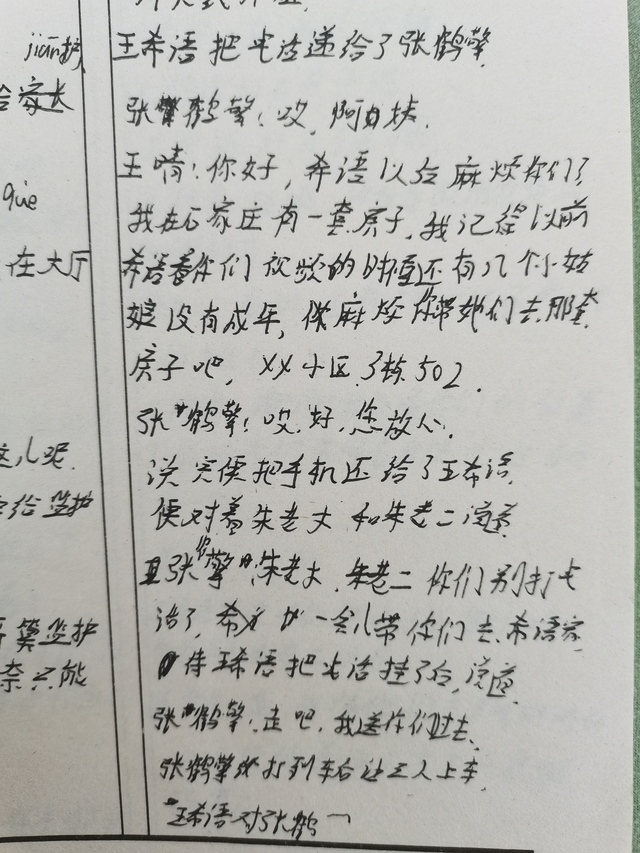 jiān护
给家长
que
在大厅
这儿呢.
给监护
监护
奈只能
王希语把电话递给了张鹤擎
张鹤擎:哎,阿姨.
王晴:你好,希语以后麻烦你们了
我在石家庄有一套房子,我记得以前
希语看你们视频的时候还有几个小姑
娘没有成年,麻烦你带她们去那套
房子吧,XX小区3栋502.
张鹤擎:哎,好,您放心.
说完便把手机还给了王希语.
便对着朱老大和朱老二说道
张擎:朱老大,朱老二你们别打电
话了,一会儿带你们去希语家
待王希语把电话挂了后,说道
张鹤擎:走吧,我送你们过去.
张鹤擎打到车后让三人上车.
王希语对张鹤